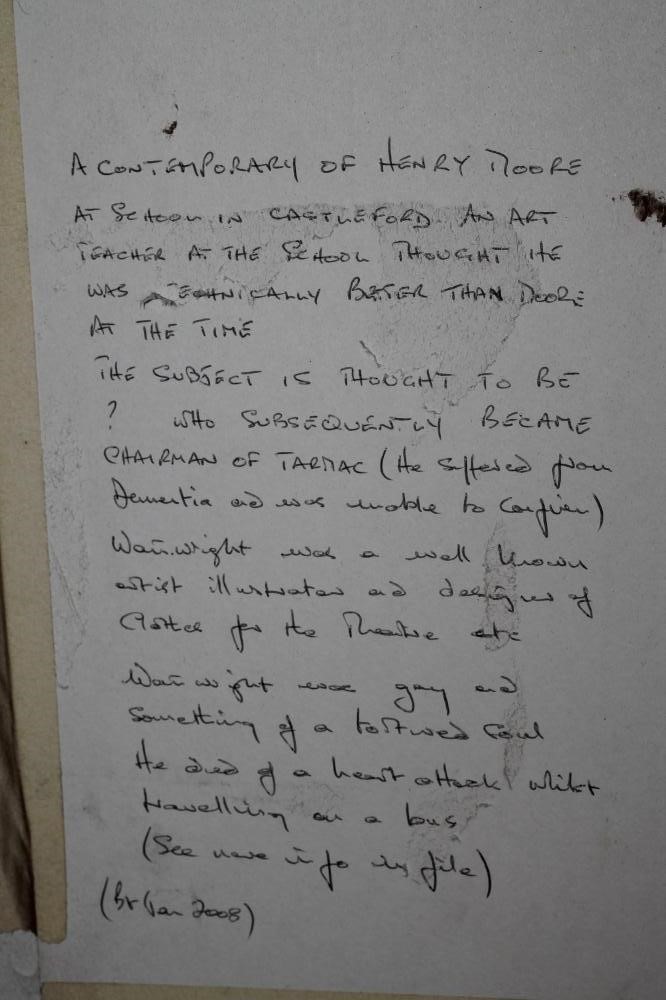 A CONTEMPORARY OF HENRY MOORE
AT SCHOOL IN CASTLEFORD. AN ART
TEACHER AT THE SCHOOL THOUGHT HE
WAS TECHNICALLY BETTER THAN MOORE
AT THE TIME
THE SUBJECT IS THOUGHT TO BE
? WHO SUBSEQUENTLY BECAME
CHAIRMAN OF TARMAC (He suffered from
Dementia and was unable to confirm)
Wainwright was a well known
artist illustrator and designer of
Clothes for the Theatre etc
Wainwright was gay and
Something of a tortured soul
He died of a heart attack whilst
travelling on a bus
(See more info in file)
(Jan 2008)